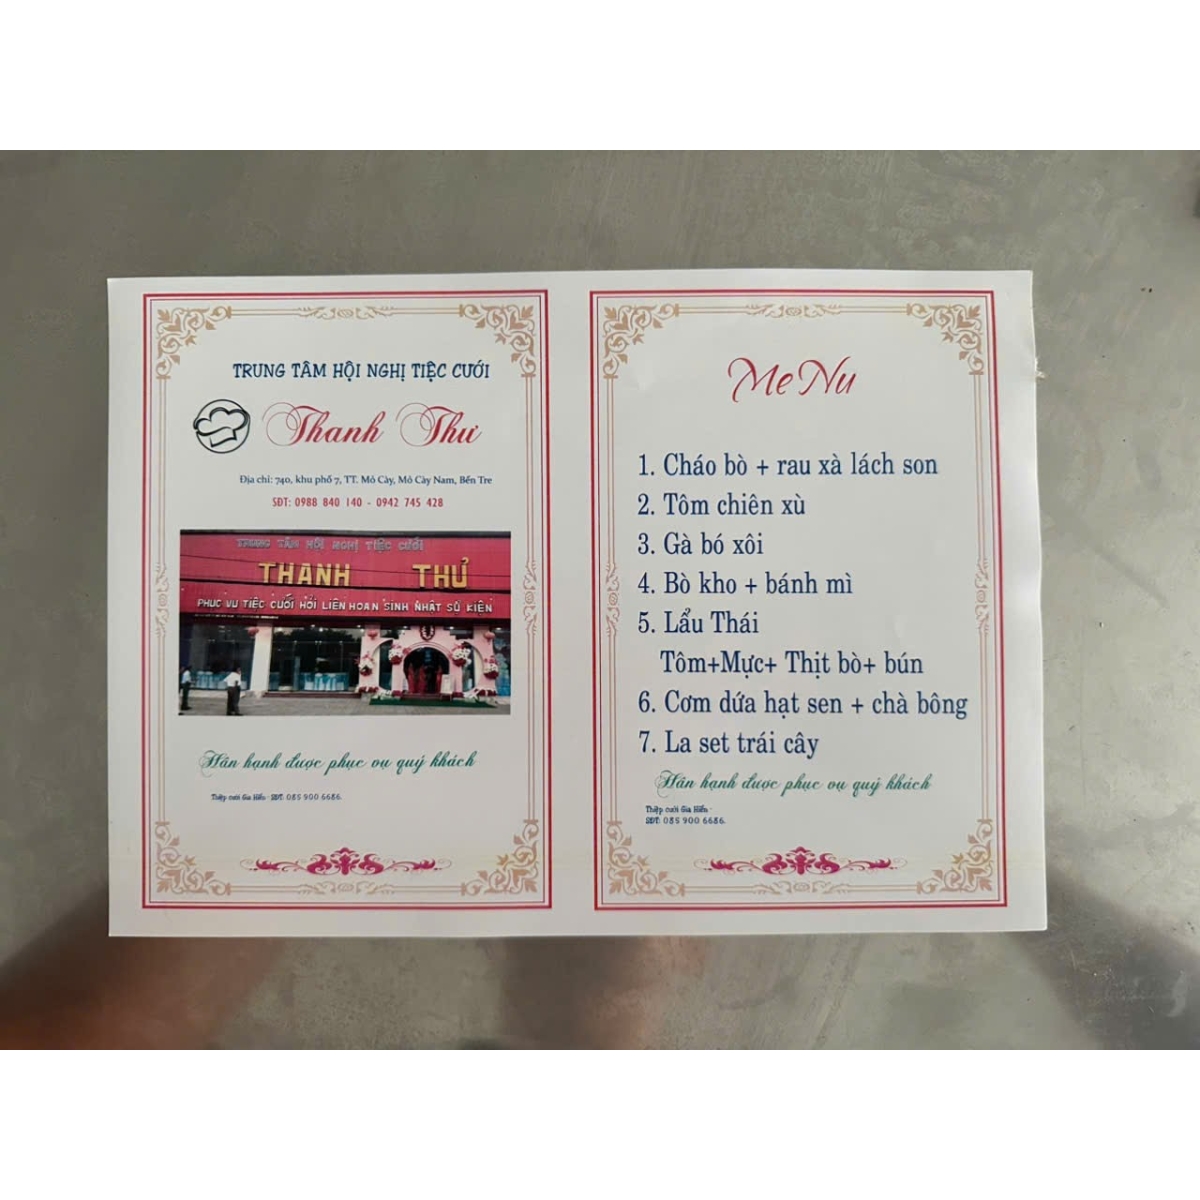 TRUNG TÂM HỘI NGHỊ TIỆC CƯỚI
Thanh Thư
Địa chỉ: 740, khu phố 7, TT. Mỏ Cày, Mỏ Cày Nam, Bến Tre
SĐT: 0988 840 140 - 0942 745 428
TRUNG TÂM HỘI NGHỊ TIỆC CƯỚI
THANH THƯ
PHỤC VỤ TIỆC CƯỚI HỎI LIÊN HOAN SINH NHẬT SỰ KIỆN
Hân hạnh được phục vụ quý khách
Thiệp cưới Gia Hiển - SĐT: 085 900 6686.
MeNu
1. Cháo bò + rau xà lách son
2. Tôm chiên xù
3. Gà bó xôi
4. Bò kho + bánh mì
5. Lẩu Thái
Tôm+Mực+ Thịt bò+ bún
6. Cơm dứa hạt sen + chà bông
7. La set trái cây
Hân hạnh được phục vụ quý khách
Thiệp cưới Gia Hiển -
SĐT: 085 900 6686.